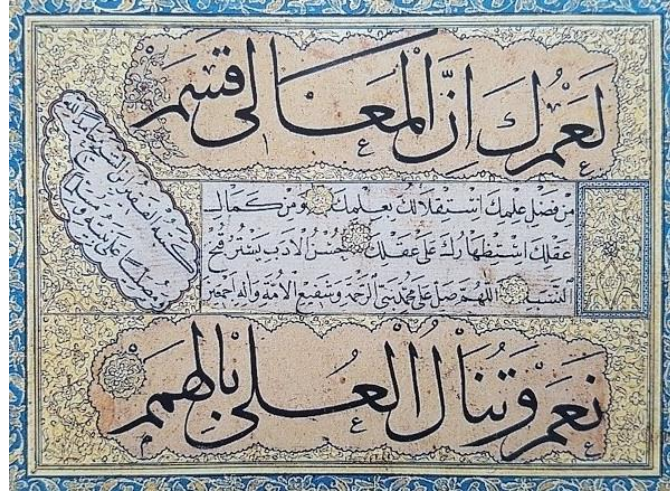 لَعَمْرُكَ اِنَّ الْمَعَالِى قِسَمْ
مِنْ فَضْلِ عِلْمِكَ اسْتِقْلَالُكَ بِعِلْمِكَ وَمِنْ كَمَالِ
عَقْلِكَ اسْتِظْهَارُكَ عَلَى عَقْلِكَ حُسْنُ الْاَدَبِ يَسْتُرُ قُبْحَ
النَّسَبِ اللّٰهُمَّ صَلِّ عَلَى مُحَمَّدٍ نَبِىِّ الرَّحْمَةِ وَشَفِيعِ الْاُمَّةِ وَاٰلِهِ اَجْمَعِينَ
نِعَمْ وَتُنَالُ الْعُلٰى بِالْهِمَمْ
كتبه الفقير
على نبيه و